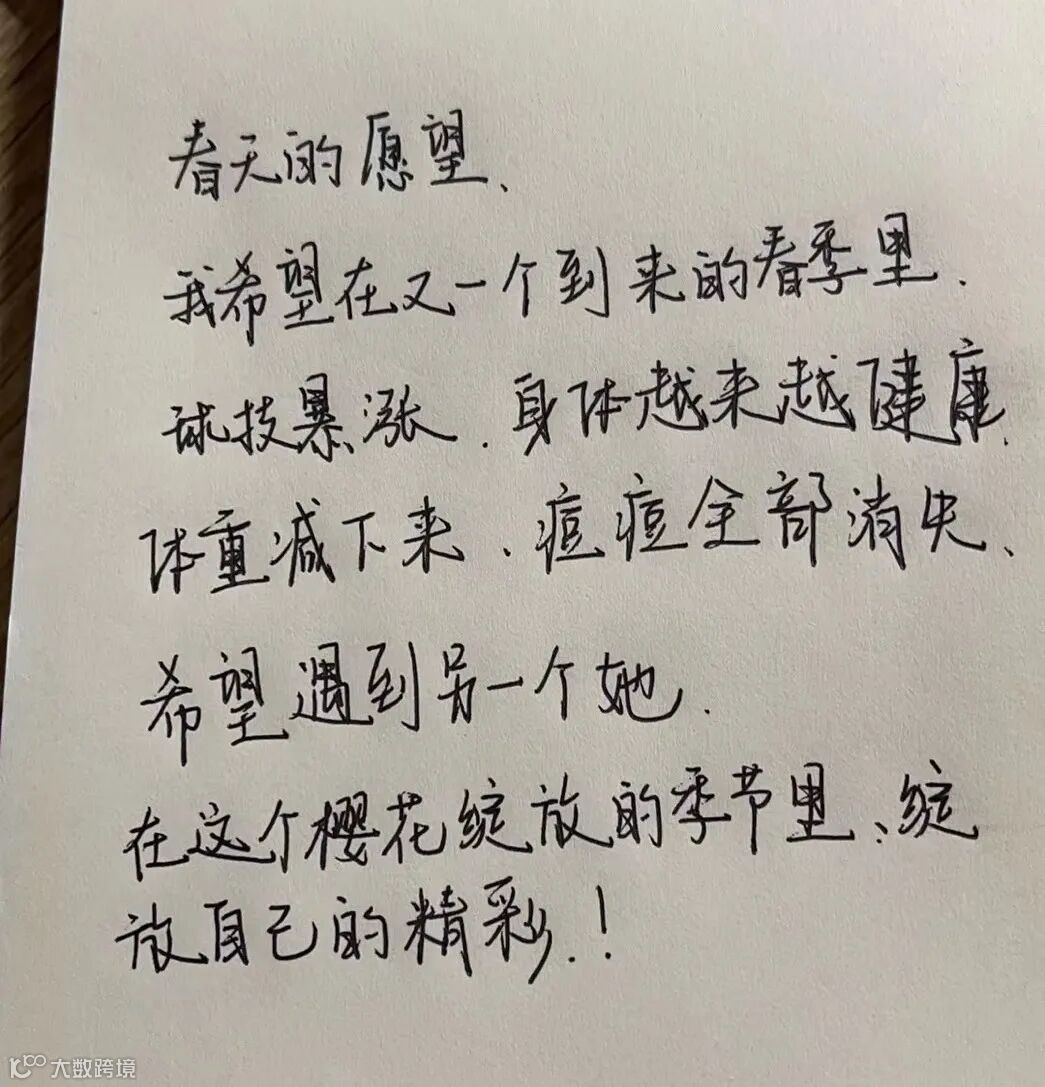 春天的愿望、
我希望在又一个到来的春季里.
球技暴涨.身体越来越健康.
体重减下来.痘痘全部消失、
希望遇到另一个她.
在这个樱花绽放的季节里、绽
放自己的精彩.!
大数跨境